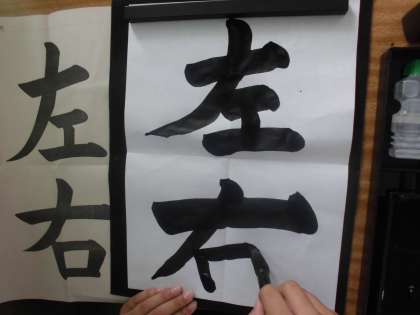 左右
左右